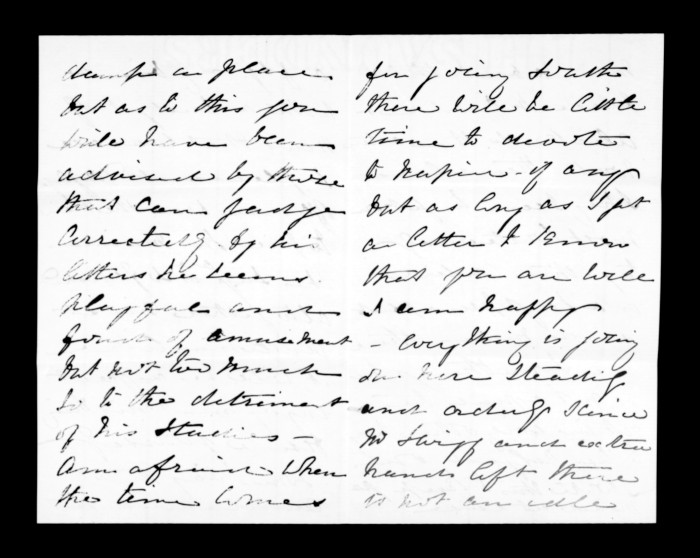 damp a place
but as to this you
will have been
advised by those
that can judge
correctly. By his
letters he seems
playful and
fond of amusement
but not too much
so to the detriment
of his studies —
Am afraid when
the time comes
for going South
there will be little
time to devote
to Napier - if any
but as long as I get
a letter & know
that you are well
I am happy
- everything is going
on here steadily
and orderly since
Mr and extra
hands left there
is not an idle